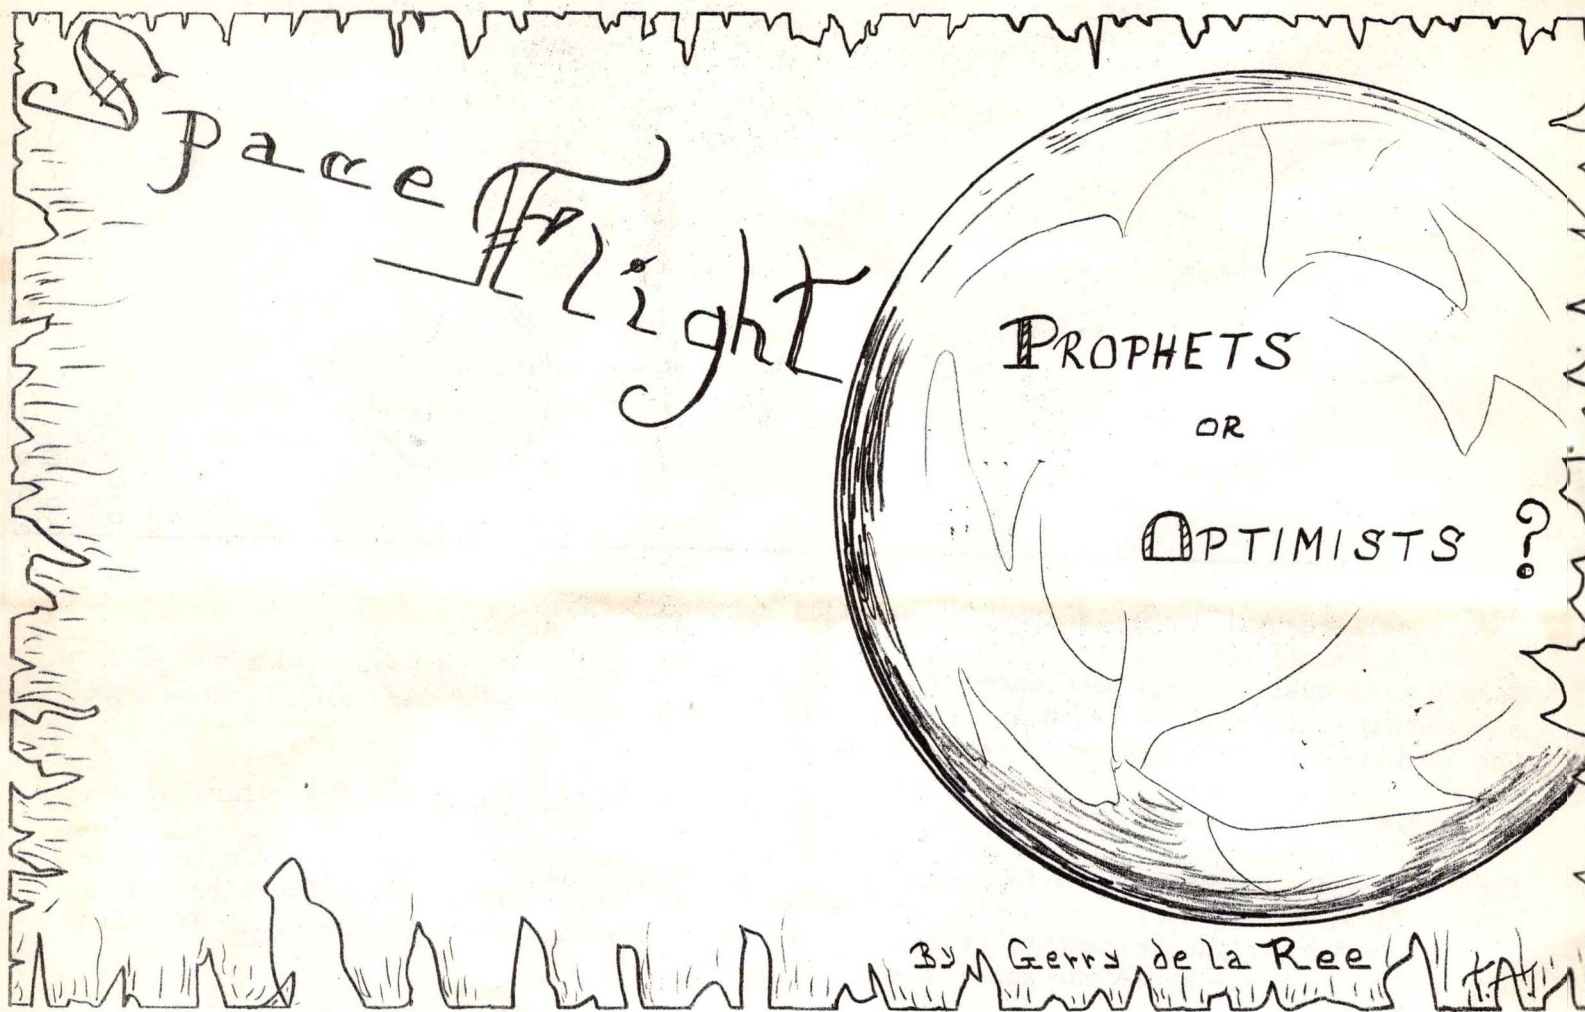 Space Flight
PROPHETS
OR
OPTIMISTS ?
By Gerry de la Ree